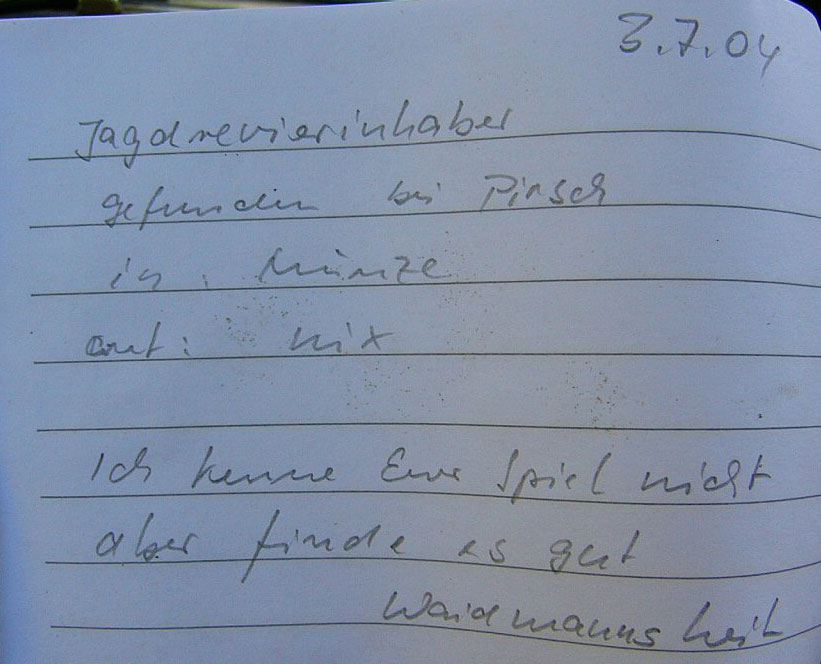 3.7.04
Jagdrevierinhaber
gefunden bei Pirsch
in: Münze
out: nix
Ich kenne Euer Spiel nicht
aber finde es gut
Waidmanns heil